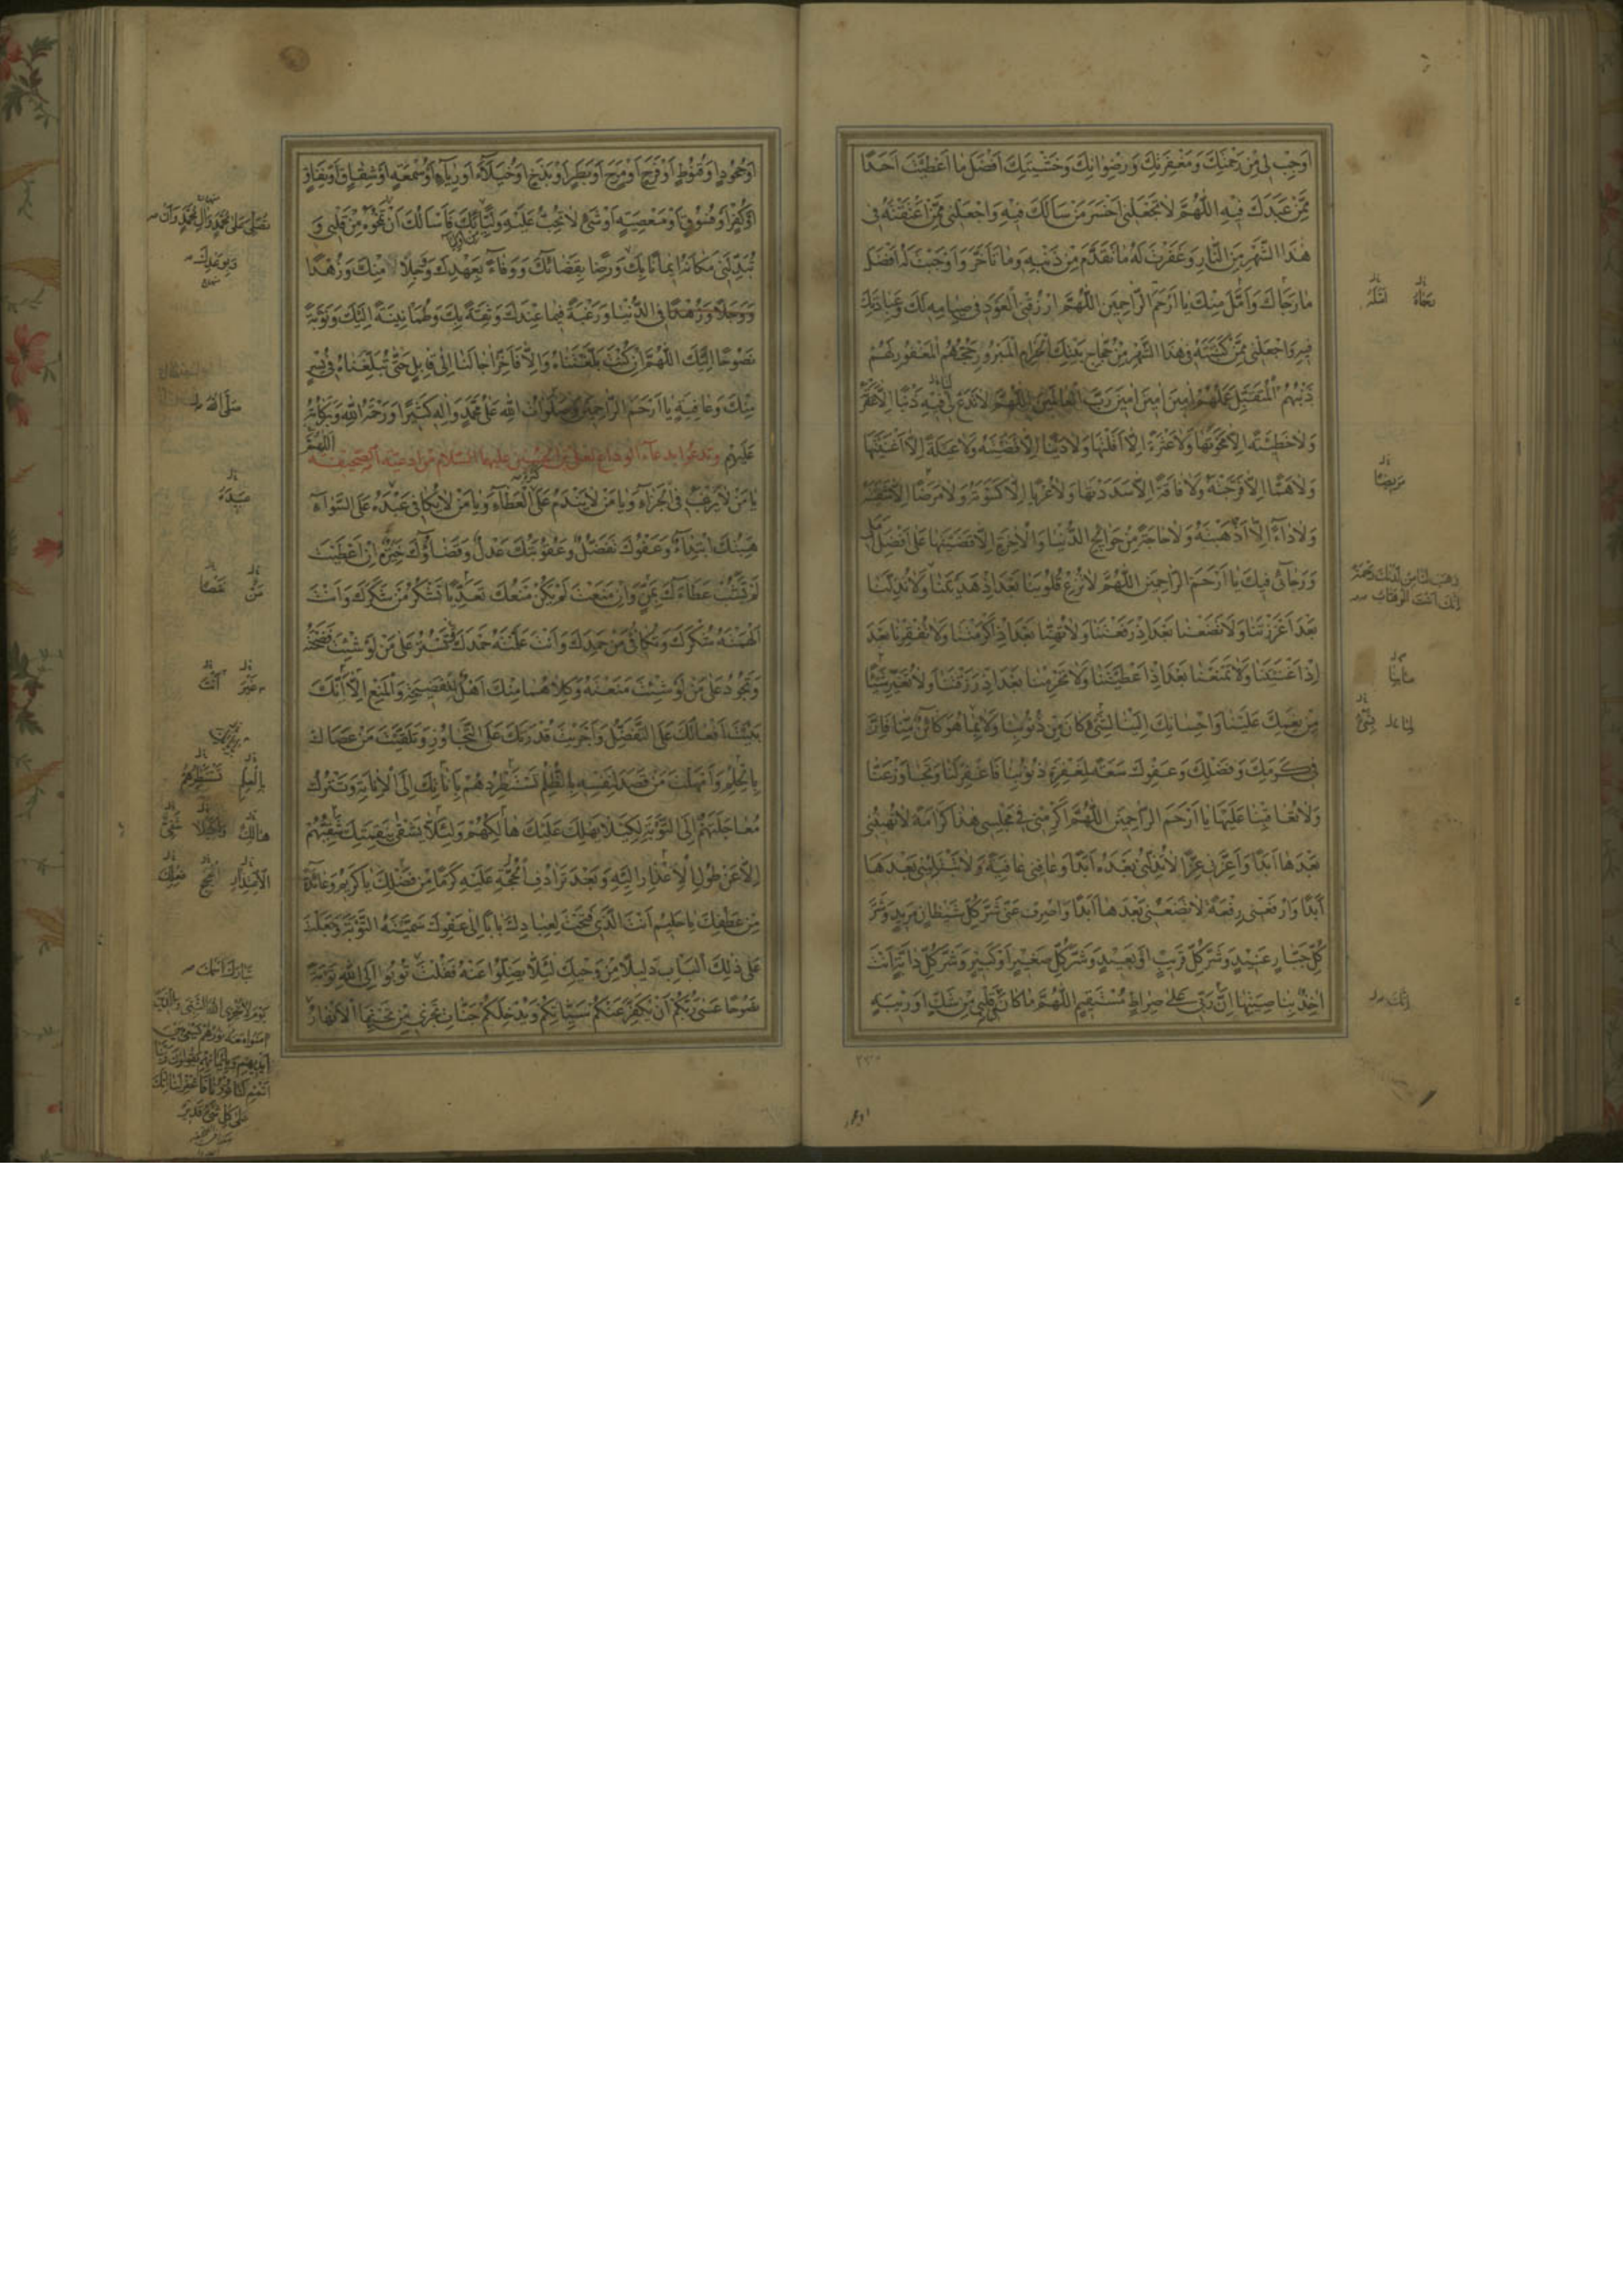 اَوجِبْ لی مِنْ رَحْمَتِكَ وَمَغْفِرَتِكَ وَرِضْوانِكَ وَخَشْیَتِكَ اَفْضَلَ ما اَعْطَیْتَ اَحَدًا
مِمَّنْ عَبَدَكَ فیهِ اَللّٰهُمَّ لاتَجْعَلْنی اَخْسَرَ مَنْ سَأَلَكَ فیهِ وَاجْعَلْنی مِمَّنْ اَعْتَقْتَهُ فی
هٰذَا الشَّهْرِ مِنَ النّارِ وَغَفَرْتَ لَهُ ماتَقَدَّمَ مِنْ ذَنْبِهِ وَما تَأَخَّرَ وَاَوْجَبْتَ لَهُ اَفْضَلَ
ما رَجاكَ وَاَمَّلَ مِنْكَ یا اَرْحَمَ الرّاحِمینَ اَللّٰهُمَّ ارْزُقْنِی الْعَوْدَ فی صِیامِهِ لَكَ وَعِبادَتِكَ
فیهِ وَاجْعَلْنی مِمَّنْ كَتَبْتَهُ فی هٰذَا الشَّهْرِ مِنْ حُجّاجِ بَیْتِكَ الْحَرامِ الْمَبْرُورِ حَجُّهُمُ الْمَغْفُورِ لَهُمْ
ذَنْبُهُمُ الْمُتَقَبَّلِ عَمَلُهُمْ اٰمینَ اٰمینَ اٰمینَ رَبَّ الْعالَمینَ اَللّٰهُمَّ لاتَدَعْ لی فیهِ ذَنْبًا اِلاّ غَفَرْتَهُ
وَلا خَطیئَةً اِلاّ مَحَوْتَها وَلا عَثْرَةً اِلاّ اَقَلْتَها وَلا دَیْنًا اِلاّ قَضَیْتَهُ وَلا عَیْلَةً اِلاّ اَغْنَیْتَها
وَلا هَمًّا اِلاّ فَرَّجْتَهُ وَلا فاقَةً اِلاّ سَدَدْتَها وَلا عُرْیًا اِلاّ كَسَوْتَهُ وَلا مَرَضًا اِلاّ شَفَیْتَهُ
وَلا داءً اِلاّ اَذْهَبْتَهُ وَلا حاجَةً مِنْ حَوائِجِ الدُّنْیا وَالْاٰخِرَةِ اِلاّ قَضَیْتَها عَلیٰ اَفْضَلِ اَمَلی
وَرَجائی فیكَ یا اَرْحَمَ الرّاحِمینَ اَللّٰهُمَّ لاتُزِغْ قُلُوبَنا بَعْدَ اِذْ هَدَیْتَنا وَلا تُذِلَّنا
بَعْدَ اِذْ اَعْزَزْتَنا وَلا تَضَعْنا بَعْدَ اِذْ رَفَعْتَنا وَلا تُهِنّا بَعْدَ اِذْ اَكْرَمْتَنا وَلا تُفْقِرْنا بَعْدَ
اِذْ اَغْنَیْتَنا وَلا تَمْنَعْنا بَعْدَ اِذْ اَعْطَیْتَنا وَلا تَحْرِمْنا بَعْدَ اِذْ رَزَقْتَنا وَلا تُغَیِّرْ شَیْئًا
مِنْ نِعَمِكَ عَلَیْنا وَاِحْسانِكَ اِلَیْنا لِشَیْءٍ كانَ مِنْ ذُنُوبِنا وَلا لِما هُوَ كائِنٌ مِنّا فَاِنَّ
فی كَرَمِكَ وَفَضْلِكَ وَعَفْوِكَ سَعَةً لِمَغْفِرَةِ ذُنُوبِنا فَاغْفِرْ لَنا وَتَجاوَزْ عَنّا
وَلا تُعاقِبْنا عَلَیْها یا اَرْحَمَ الرّاحِمینَ اَللّٰهُمَّ اَكْرِمْنی فی مَجْلِسی هٰذا كَرامَةً لاتُهینُنی
بَعْدَها اَبَدًا وَاَعِزَّنی عِزًّا لاتُذِلُّنی بَعْدَهُ اَبَدًا وَعافِنی عافِیَةً وَلا تَبْتَلینی بَعْدَها
اَبَدًا وَارْفَعْنی رِفْعَةً لاتَضَعُنی بَعْدَها اَبَدًا وَاصْرِفْ عَنّی شَرَّ كُلِّ شَیْطانٍ مَریدٍ وَشَرَّ
كُلِّ جَبّارٍ عَنیدٍ وَشَرَّ كُلِّ قَریبٍ اَوْ بَعیدٍ وَشَرَّ كُلِّ صَغیرٍ اَوْ كَبیرٍ وَشَرَّ كُلِّ دابَّةٍ اَنْتَ
اٰخِذٌ بِناصِیَتِها اِنَّ رَبّی عَلیٰ صِراطٍ مُسْتَقیمٍ اَللّٰهُمَّ ما كانَ فی قَلْبی مِنْ شَكٍّ اَوْ رَیْبَةٍ
رَجاهُ
اَمَّلَهُ
مَریضًا
وَهَبْ لَنا مِنْ لَدُنْكَ رَحْمَةً
اِنَّكَ اَنْتَ الْوَهّابُ
اِنَّكَ
اَوْ جُحُودٍ اَوْ قُنُوطٍ اَوْ فَرَحٍ اَوْ مَرَحٍ اَوْ بَطَرٍ اَوْ بَذَخٍ اَوْ خُیَلاءَ اَوْ رِیاءٍ اَوْ سُمْعَةٍ اَوْ شِقاقٍ اَوْ نِفاقٍ
اَوْ كُفْرٍ اَوْ فُسُوقٍ اَوْ مَعْصِیَةٍ اَوْ شَیْءٍ لاتُحِبُّ عَلَیْهِ وَلِیًّا لَكَ فَاَسْأَلُكَ اَنْ تَمْحُوَهُ مِنْ قَلْبی وَ
تُبَدِّلَنی مَكانَهُ ایمانًا بِكَ وَرِضًا بِقَضائِكَ وَوَفاءً بِعَهْدِكَ وَوَجَلًا مِنْكَ وَزُهْدًا
وَوَجَلًا وَزُهْدًا فِی الدُّنْیا وَرَغْبَةً فیما عِنْدَكَ وَثِقَةً بِكَ وَطُمَأْنینَةً اِلَیْكَ وَتَوْبَةً
نَصُوحًا اِلَیْكَ اَللّٰهُمَّ اِنْ كُنْتَ بَلَّغْتَناهُ وَاِلاّ فَاَخِّرْ اٰجالَنا اِلیٰ قابِلٍ حَتّیٰ تُبَلِّغَناهُ فی یُسْرٍ
مِنْكَ وَعافِیَةٍ یا اَرْحَمَ الرّاحِمینَ وَصَلَواتُ اللّٰهِ عَلیٰ مُحَمَّدٍ وَاٰلِهِ كَثیرًا وَرَحْمَةُ اللّٰهِ وَبَرَكاتُهُ
عَلَیْهِمْ وتدعوا بدعاء الوداع لعلی بن الحسین علیهما السلام من ادعیة الصحیفة اَللّٰهُمَّ
یا مَنْ لایَرْغَبُ فِی الْجَزاءِ وَیا مَنْ لایَنْدَمُ عَلَی الْعَطاءِ وَیا مَنْ لایُكافی عَبْدَهُ عَلَی السَّواءِ
هِبَتُكَ ابْتِداءٌ وَعَفْوُكَ تَفَضُّلٌ وَعُقُوبَتُكَ عَدْلٌ وَقَضاؤُكَ خِیَرَةٌ اِنْ اَعْطَیْتَ
لَمْ تَشُبْ عَطاءَكَ بِمَنٍّ وَاِنْ مَنَعْتَ لَمْ یَكُنْ مَنْعُكَ تَعَدِّیًا تَشْكُرُ مَنْ شَكَرَكَ وَاَنْتَ
اَلْهَمْتَهُ شُكْرَكَ وَتُكافِی مَنْ حَمِدَكَ وَاَنْتَ عَلَّمْتَهُ حَمْدَكَ تَسْتُرُ عَلیٰ مَنْ لَوْ شِئْتَ فَضَحْتَهُ
وَتَجُودُ عَلیٰ مَنْ لَوْ شِئْتَ مَنَعْتَهُ وَكِلاهُما مِنْكَ اَهْلٌ لِلْفَضیحَةِ وَالْمَنْعِ اِلاّ اَنَّكَ
بَنَیْتَ اَفْعالَكَ عَلَی التَّفَضُّلِ وَاَجْرَیْتَ قُدْرَتَكَ عَلَی التَّجاوُزِ وَتَلَقَّیْتَ مَنْ عَصاكَ
بِالْحِلْمِ وَاَمْهَلْتَ مَنْ قَصَدَ لِنَفْسِهِ بِالظُّلْمِ تَسْتَنْظِرُهُمْ بِاَناتِكَ اِلَی الْاِنابَةِ وَتَتْرُكُ
مُعاجَلَتَهُمْ اِلَی التَّوْبَةِ لِكَیْلا یَهْلِكَ عَلَیْكَ هالِكُهُمْ وَلِئَلاّ یَشْقیٰ بِنِقْمَتِكَ شَقِیُّهُمْ
اِلاّ عَنْ طُولِ الْاِعْذارِ اِلَیْهِ وَبَعْدَ تَرادُفِ الْحُجَّةِ عَلَیْهِ كَرَمًا مِنْ فَضْلِكَ یا كَریمُ وَعائِدَةً
مِنْ عَطْفِكَ یا حَلیمُ اَنْتَ الَّذی فَتَحْتَ لِعِبادِكَ بابًا اِلیٰ عَفْوِكَ سَمَّیْتَهُ التَّوْبَةَ وَجَعَلْتَ
عَلیٰ ذٰلِكَ الْبابِ دَلیلًا مِنْ وَحْیِكَ لِئَلاّ یَضِلُّوا عَنْهُ فَقُلْتَ تُوبُوا اِلَی اللّٰهِ تَوْبَةً
نَصُوحًا عَسیٰ رَبُّكُمْ اَنْ یُكَفِّرَ عَنْكُمْ سَیِّئاتِكُمْ وَیُدْخِلَكُمْ جَنّاتٍ تَجْری مِنْ تَحْتِهَا الْاَنْهارُ
تُصَلِّیَ عَلیٰ مُحَمَّدٍ وَاٰلِ مُحَمَّدٍ وَاَنْ
صَلَّی اللّٰهُ
عَبْدَهُ
تَبارَكَ اسْمُكَ
یَوْمَ لایُخْزِی اللّٰهُ النَّبِیَّ وَالَّذینَ
اٰمَنُوا مَعَهُ نُورُهُمْ یَسْعیٰ بَیْنَ
اَیْدیهِمْ وَبِاَیْمانِهِمْ یَقُولُونَ رَبَّنا
اَتْمِمْ لَنا نُورَنا وَاغْفِرْ لَنا اِنَّكَ
عَلیٰ كُلِّ شَیْءٍ قَدیرٌ